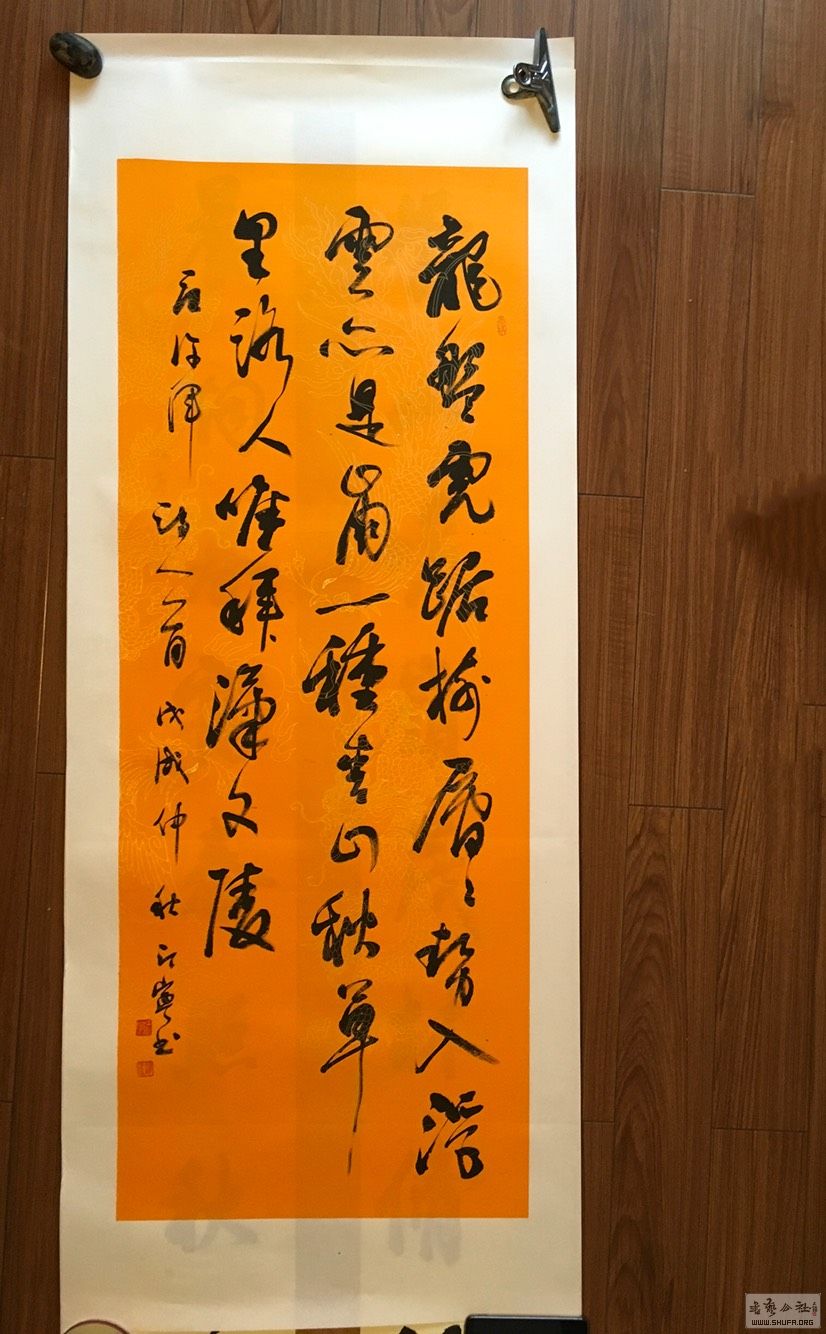 龍盤虎踞樹層〻勢入浮
雲亦是崩一種青山秋草
里路人唯拜漢文陵
唐許渾詩一首戊戌仲秋
書艺公社
WWW.SHUFA.ORG